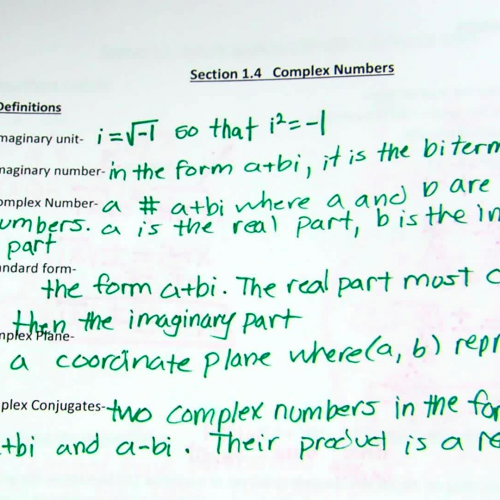 Section 1.4 Complex Numbers
Definitions
maginary unit- i = √-1 so that i² = -1
maginary number- in the form a+bi, it is the bi term
omplex Number- a # a+bi where a and b are
umbers. a is the real part, b is the im
part
andard form-
the form a+bi. The real part must c
then the imaginary part
mplex Plane-
a coordinate plane where (a, b) repr
plex Conjugates- two complex numbers in the for
+bi and a-bi. Their product is a re